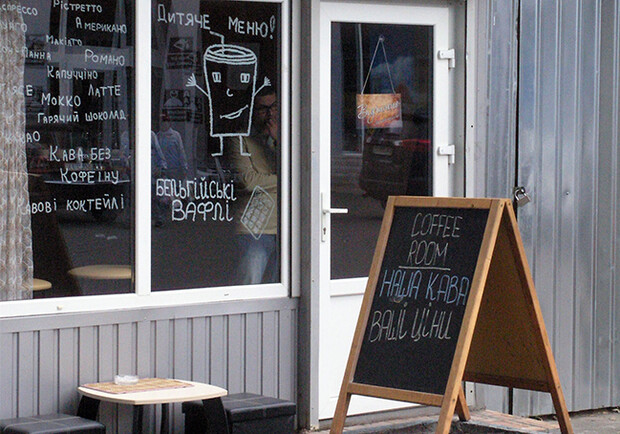 Рістретто
Американо
Макіато
Романо
Капуччіно
Латте
Мокко
Гарячий шоколад
Кава без
кофеїну
коктейлі
Дитяче Меню!
Бельгійські
вафлі
COFFEE
ROOM
НАША КАВА
ВАШІ ЦІНИ